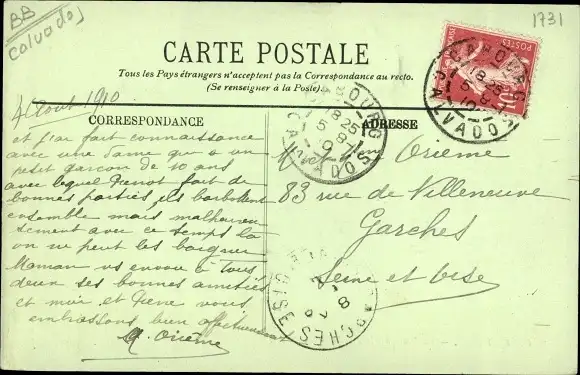 BB
Calvados
1731
CARTE POSTALE
Tous les Pays étrangers n'acceptent pas la Correspondance au recto.
(Se renseigner à la Poste)
4 Août 1910
CORRESPONDANCE
ADRESSE
et j'ai fait connaissance
avec une dame qui a un
petit garçon de 10 ans
avec lequel fait de
bonnes parties, ils barbottent
ensemble mais malheureu-
sement avec ce temps là
on ne peut les baigner
Maman vs envoie à tous
deux ses bonnes amitiés
et moi et vous
embrassons bien affectueusement
Orième
Orième
83 rue de Villeneuve
Garches
Seine et Oise
CABOURG
18 25
5 8
10
CALVADOS
POSTES
10
CABOURG
18 25
5 8
10
CALVADOS
GARCHES
8
OISE